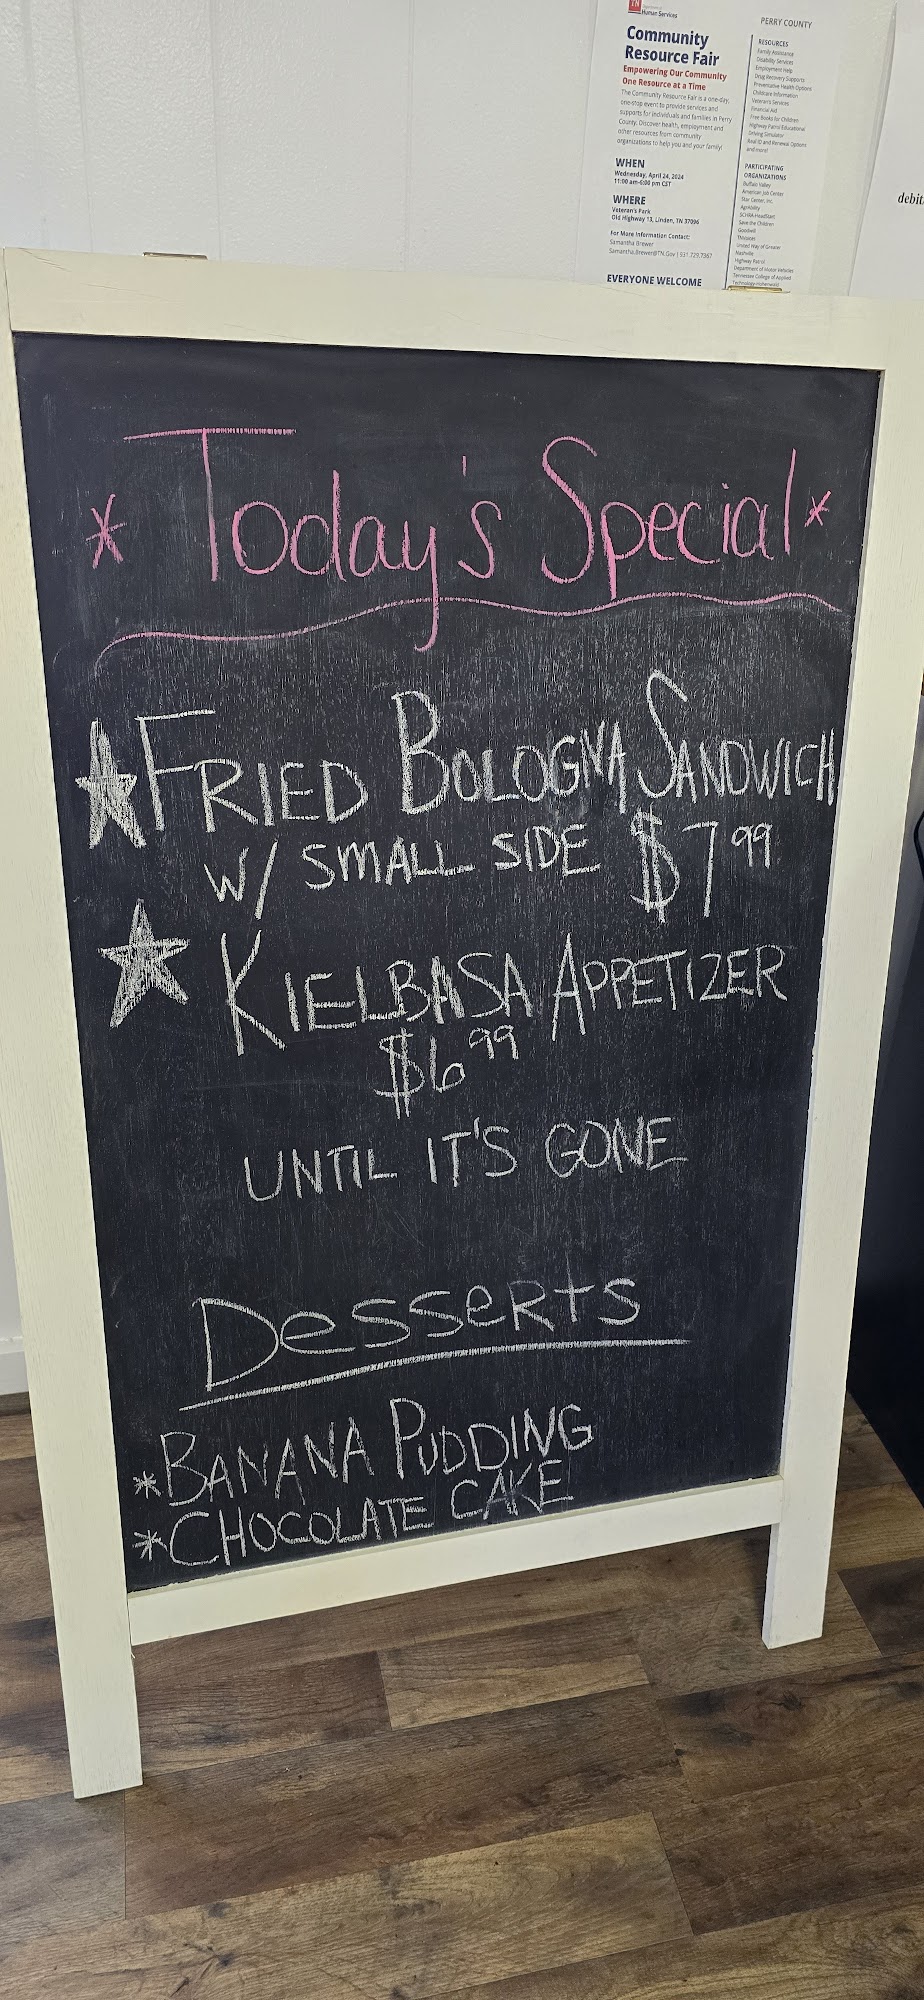 TN
Human Services
Community
Resource Fair
Empowering Our Community
One Resource at a Time
The Community Resource Fair is a one-day,
one-stop event to provide services and
supports for individuals and families in Perry
County. Discover health, employment and
other resources from community
organizations to help you and your family!
WHEN
Wednesday, April 24, 2024
11:00 am-6:00 pm CST
WHERE
Veteran's Park
Old Highway 13, Linden, TN 37096
For More Information Contact:
Samantha Brewer
Samantha.Brewer@TN.Gov | 931.729.7367
EVERYONE WELCOME
PERRY COUNTY
RESOURCES
Family Assistance
Disability Services
Employment Help
Drug Recovery Supports
Preventative Health Options
Childcare Information
Veteran's Services
Financial Aid
Free Books for Children
Highway Patrol Educational
Driving Simulator
Real ID and Renewal Options
and more!
PARTICIPATING
ORGANIZATIONS
Buffalo Valley
American Job Center
Star Center, Inc.
AgrAbility
SCHRA-HeadStart
Save the Children
Goodwill
United Way of Greater
Nashville
Highway Patrol
Department of Motor Vehicles
Tennessee College of Applied
Technology-Hohenwald
debit
* Today's Special *
FRIED BOLOGNA SANDWICH
W/ SMALL SIDE $7.99
KIELBASA APPETIZER
$6.99
UNTIL IT'S GONE
Desserts
*BANANA PUDDING
*CHOCOLATE CAKE